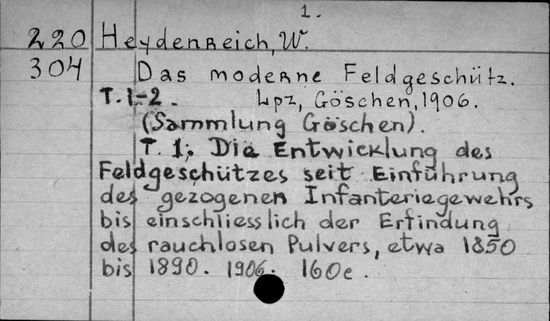 1.
220 Heydenreich, W.
304 Das moderne Feldgeschütz.
T. 1-2. Lpz, Göschen, 1906.
(Sammlung Göschen).
T. 1; Die Entwicklung des
Feldgeschützes seit Einführung
des gezogenen Infanteriegewehrs
bis einschliesslich der Erfindung
des rauchlosen Pulvers, etwa 1850
bis 1890. 1906. 160c.